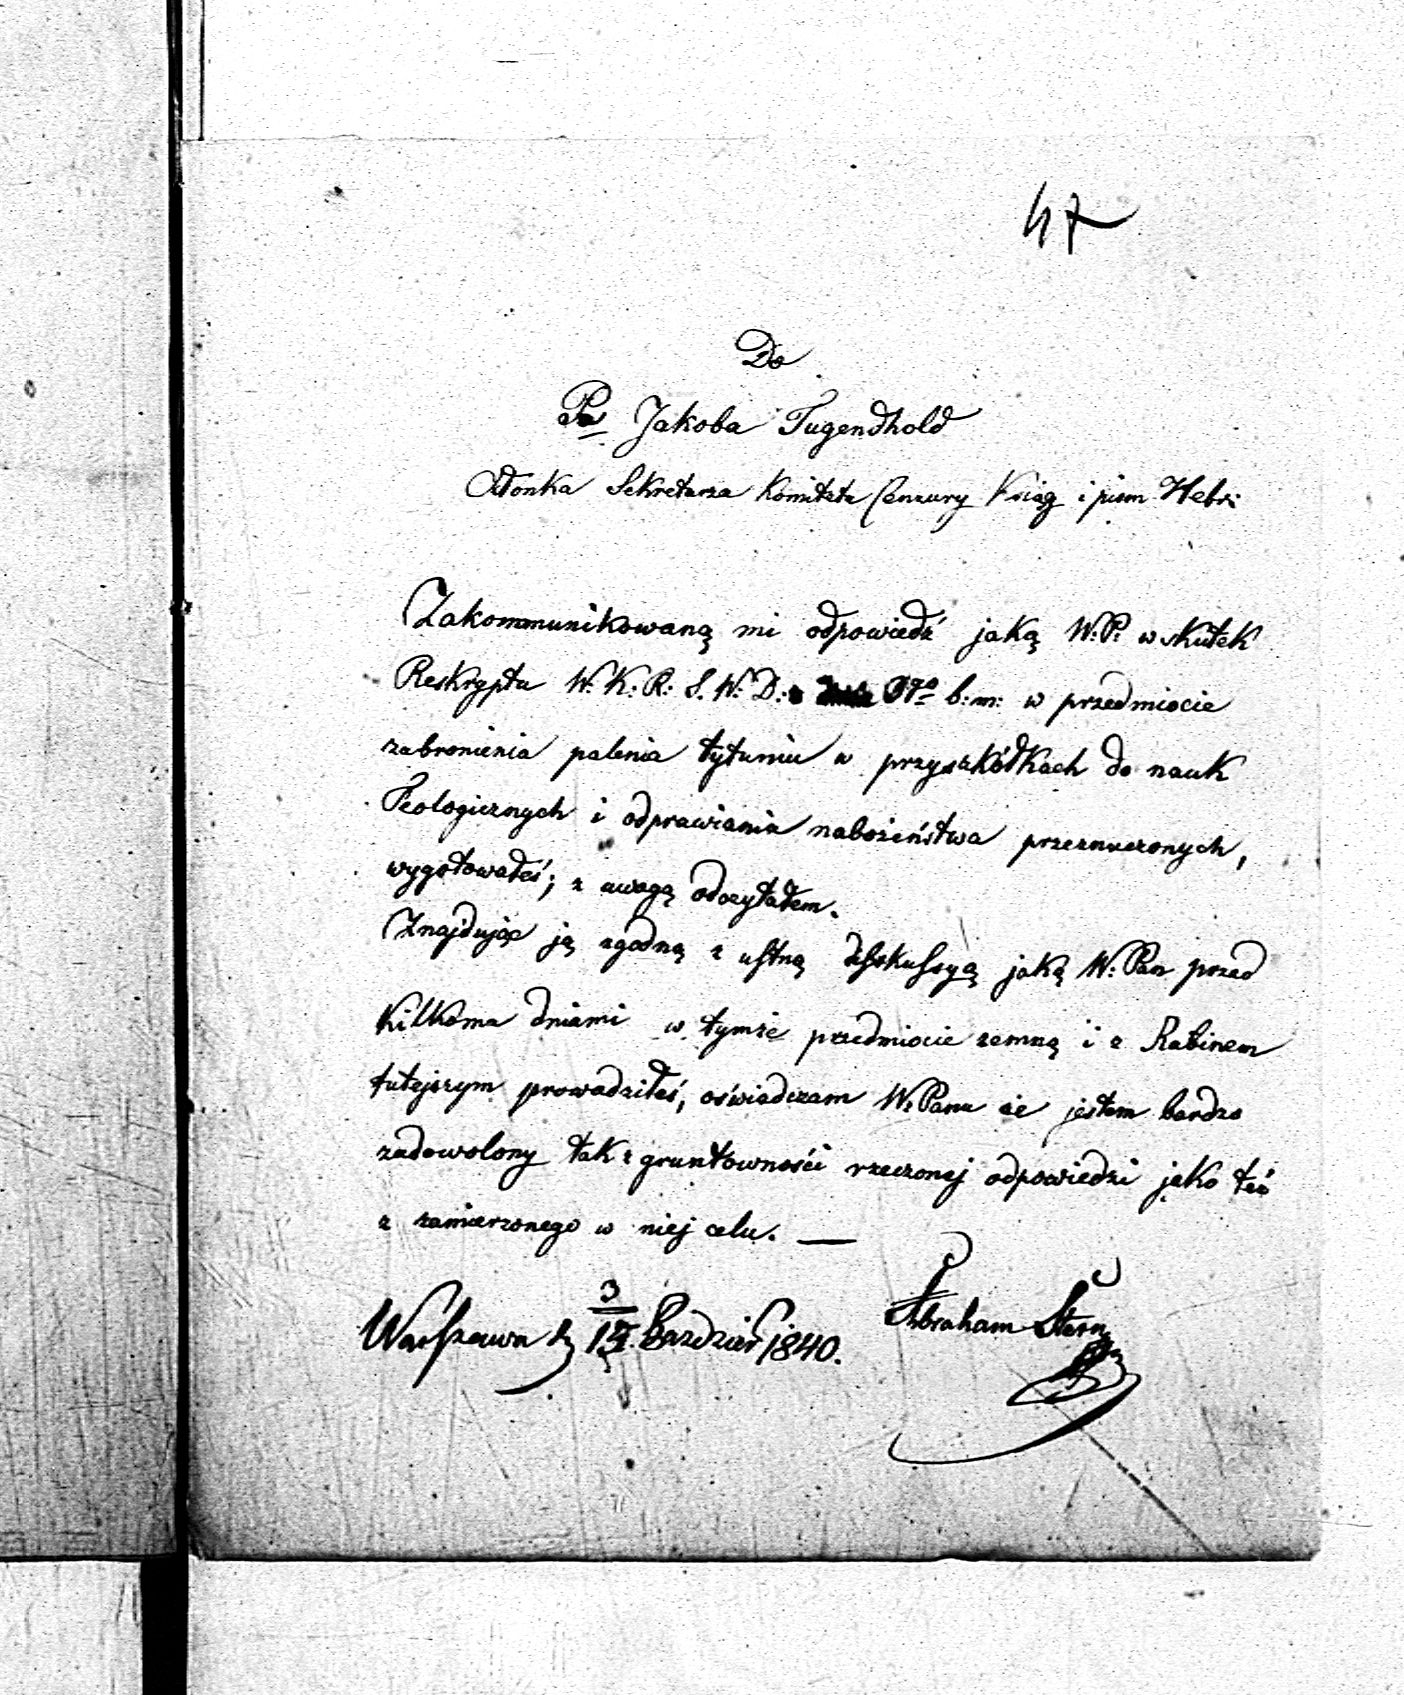 47
Do
Pa Jakoba Tugendhold
Członka Sekretarza Komitetu Cenzury Ksiąg i pism Hebr:
Zakommunikowaną mi odpowiedź jaką W: P: w skutek
Reskryptu W: K: R: S. W: D: b: m: w przedmiocie
zabronienia palenia tytuniu w przyszkółkach do nauk
Teologicznych i odprawiania nabożeństwa przeznaczonych,
wygotowałeś; z uwagą odczytałem.
Znajdując ją zgodną z ustną diskussyą jaką W: Pan przed
kilkoma dniami w tymże przedmiocie zemną i z Rabinem
tutejszym prowadziłeś, oświadczam W: Panu że jestem bardzo
zadowolony tak z gruntowności rzeczonej odpowiedzi jako też
z zamierzonego w niej celu. —
Warszawa d 3/15. Październ 1840.
Abraham Stern